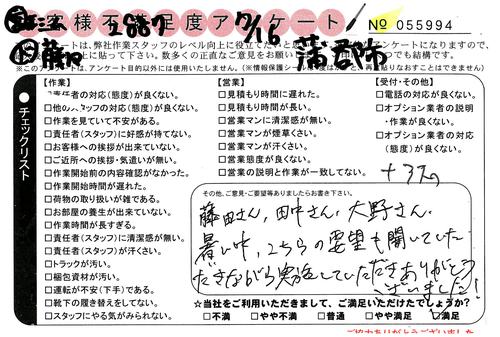 お客様不満足度アンケート!
2887
7/16
蒲郡市
No 055994
トは、弊社作業スタッフのレベル向上に役立てたいと思
に貼って下さい。数多くの正直なご意見をお願い
※このアンケートは、アンケート目的以外には使用いたしません。
チェックリスト
【作業】
作業者の対応(態度)が良くない。
□他のスタッフの対応(態度)が良くない。
□作業を見ていて不安がある。
□責任者(スタッフ)に好感が持てない。
□お客様への挨拶が出来ていない。
□ご近所への挨拶・気遣いが無い。
□作業開始前の内容確認がなかった。
□作業開始時間が遅れた。
□荷物の取り扱いが雑である。
□お部屋の養生が出来ていない。
□作業時間が長すぎる。
□責任者(スタッフ)に清潔感が無い。
□責任者(スタッフ)が汗くさい。
□トラックが汚い。
□梱包資材が汚い。
□運転が不安(下手)である。
□靴下の履き替えをしてない。
□スタッフにやる気がみられない。
【営業】
□見積もり時間に遅れた。
□見積もり時間が長い。
□営業マンに清潔感が無い。
□営業マンが煙草くさい。
□営業マンが汗くさい。
□営業態度が良くない。
□営業の説明と作業が一致してない。
【受付・その他】
□電話の対応が良くない。
□オプション業者の説明
・作業が良くない。
□オプション業者の対応
(態度)が良くない。
その他、ご意見・ご要望等ありましたらお書き下さい。
藤田さん、田中さん、大野さん、
暑い中、こちらの要望も聞いていた
だきながら実施していただきありがとう
ございました!
☆当社をご利用いただきまして、ご満足いただけたでしょうか?
□不満 □やや不満 □普通 □やや満足 満足
ご協力ありがとうございました